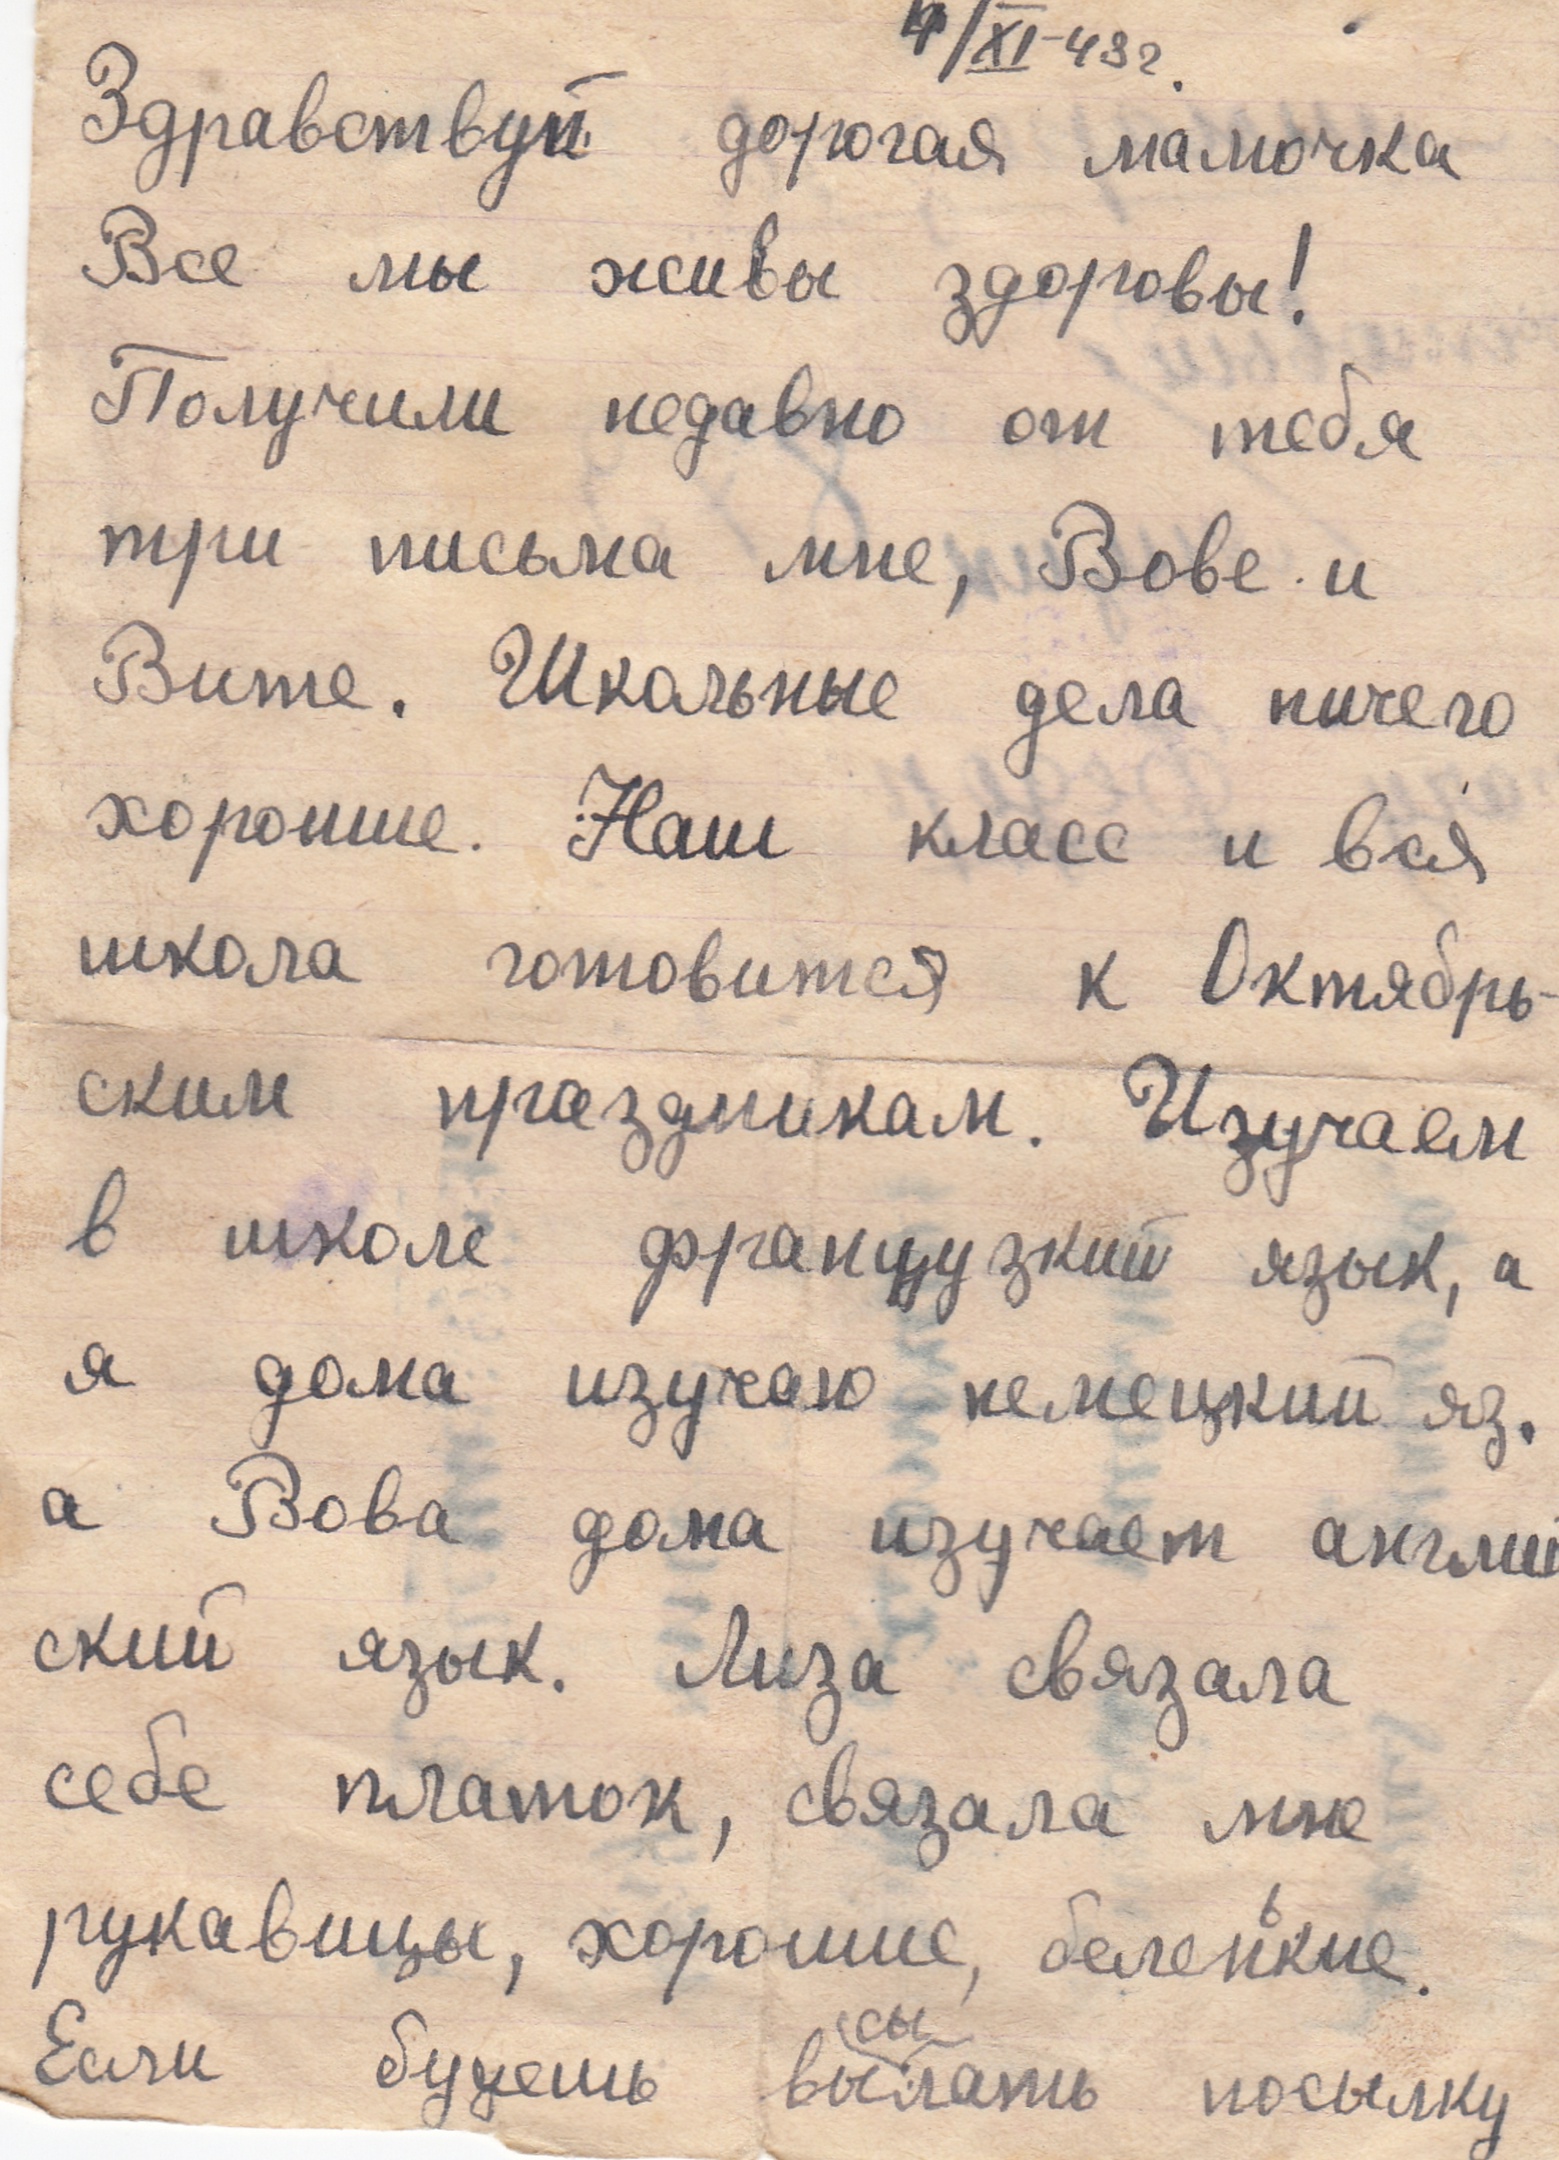 4/XI-43г.
Здравствуй дорогая мамочка
Все мы живы здоровы!
Получили недавно от тебя
три письма мне, Вове и
Вите. Школьные дела ничего
хорошие. Наш класс и вся
школа готовится к Октябрь-
ским праздникам. Изучаем
в школе французкий язык, а
я дома изучаю немецкий яз.
а Вова дома изучает англий
ский язык. Лиза связала
себе платок, связала мне
рукавицы, хорошие, беленькие.
Если будешь высылать посылку